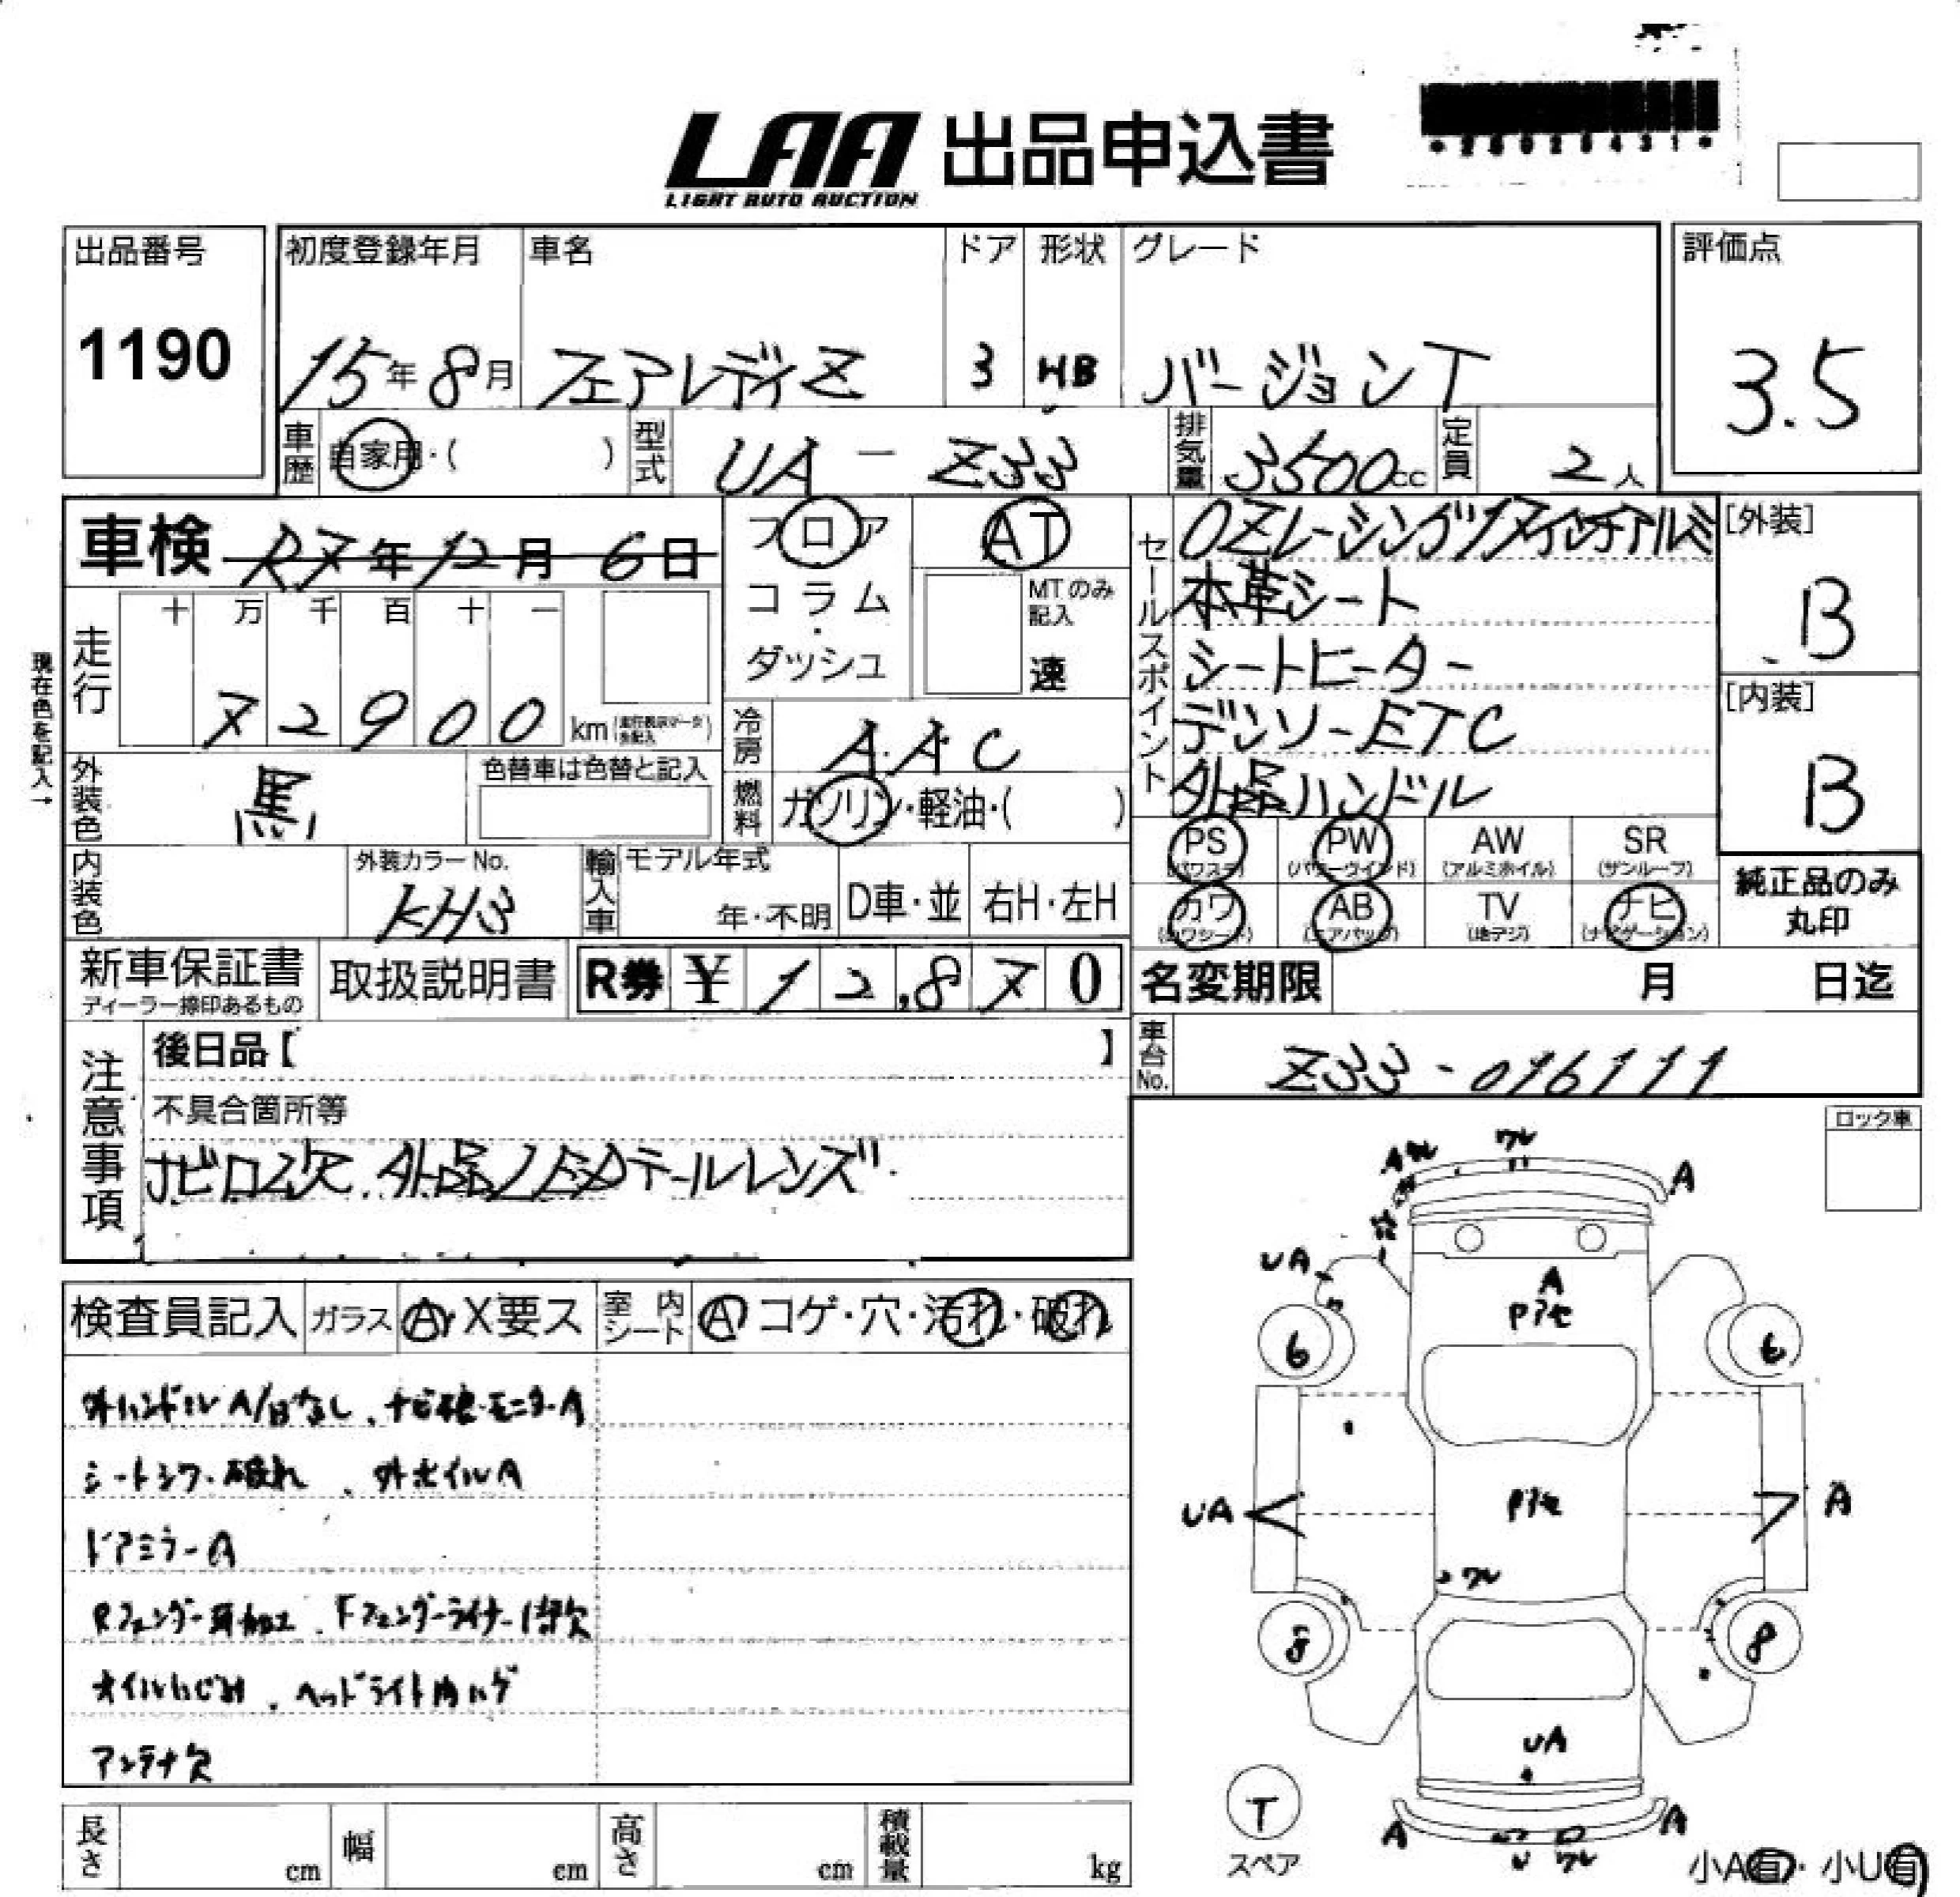 LAA 出品申込書
LIGHT AUTO AUCTION
出品番号 初度登録年月 車名 ドア 形状 グレード 評価点
1190 15年8月 フェアレディZ 3 HB バージョンT 3.5
車歴 自家用・( ) 型式 UA-Z33 排気量 3500cc 定員 2人
車検 R7年12月6日 フロア AT セールスポイント OZレーシング17インチアルミ [外装]
コラム・ダッシュ MTのみ記入 速 本革シート B
現在色を記入→
走行 十 万 千 百 十 一 シートヒーター
72900 km デンソーETC [内装]
冷房 AAC 外品ハンドル B
外装色 黒 色替車は色替と記入 燃料 ガソリン・軽油・( )
PS PW AW SR
(パワステ) (パワーウインド) (アルミホイル) (サンルーフ)
カワ AB TV ナビ 純正品のみ丸印
(カワシート) (エアバッグ) (地デジ) (ナビゲーション)
内装色 外装カラーNo. KH3 輸入車 モデル年式 年・不明 D車・並 右H・左H
新車保証書 取扱説明書 R券 ¥12,870 名変期限 月 日迄
ディーラー捺印あるもの
注意事項 後日品【 】 車台No. Z33-016111
不具合箇所等 ロック車
ナビロム欠.外品LEDテールレンズ
検査員記入 ガラス A・X要ス 室内シート A コゲ・穴・汚れ・破れ
外ハンドルA/Bなし、ナビ・モニターA
シートシワ・破れ、外ホイルA
ドアミラーA
Rフェンダー耳加工.Fフェンダーライナー1部欠
オイルにじみ.ヘッドライト内ハゲ
アンテナ欠
ワレ
A
UA
A
6 6
UA A
ワレ
8 8
UA
T
スペア
A A
U ワレ
小A有・小U有
長さ cm 幅 cm 高さ cm 積載量 kg